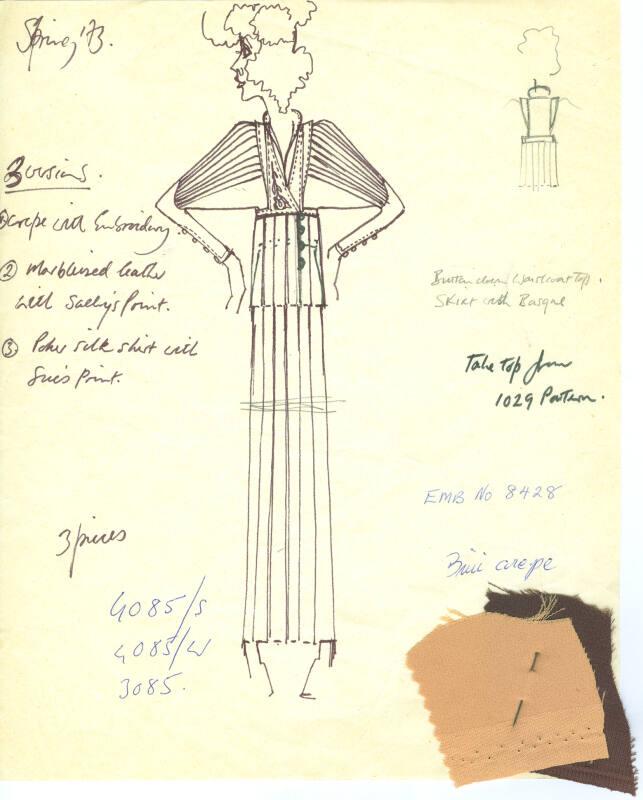 Spring '73.
3 versions.
① Crepe with Embroidery
② Marbleized leather
with Sally's Point.
③ Poker silk skirt with
Sue's Point.
Button down Waistcoat top.
Skirt with Basque
Take top from
1029 Pattern.
EMB No 8428
crepe
3 pieces
4085/S
4085/W
3085.